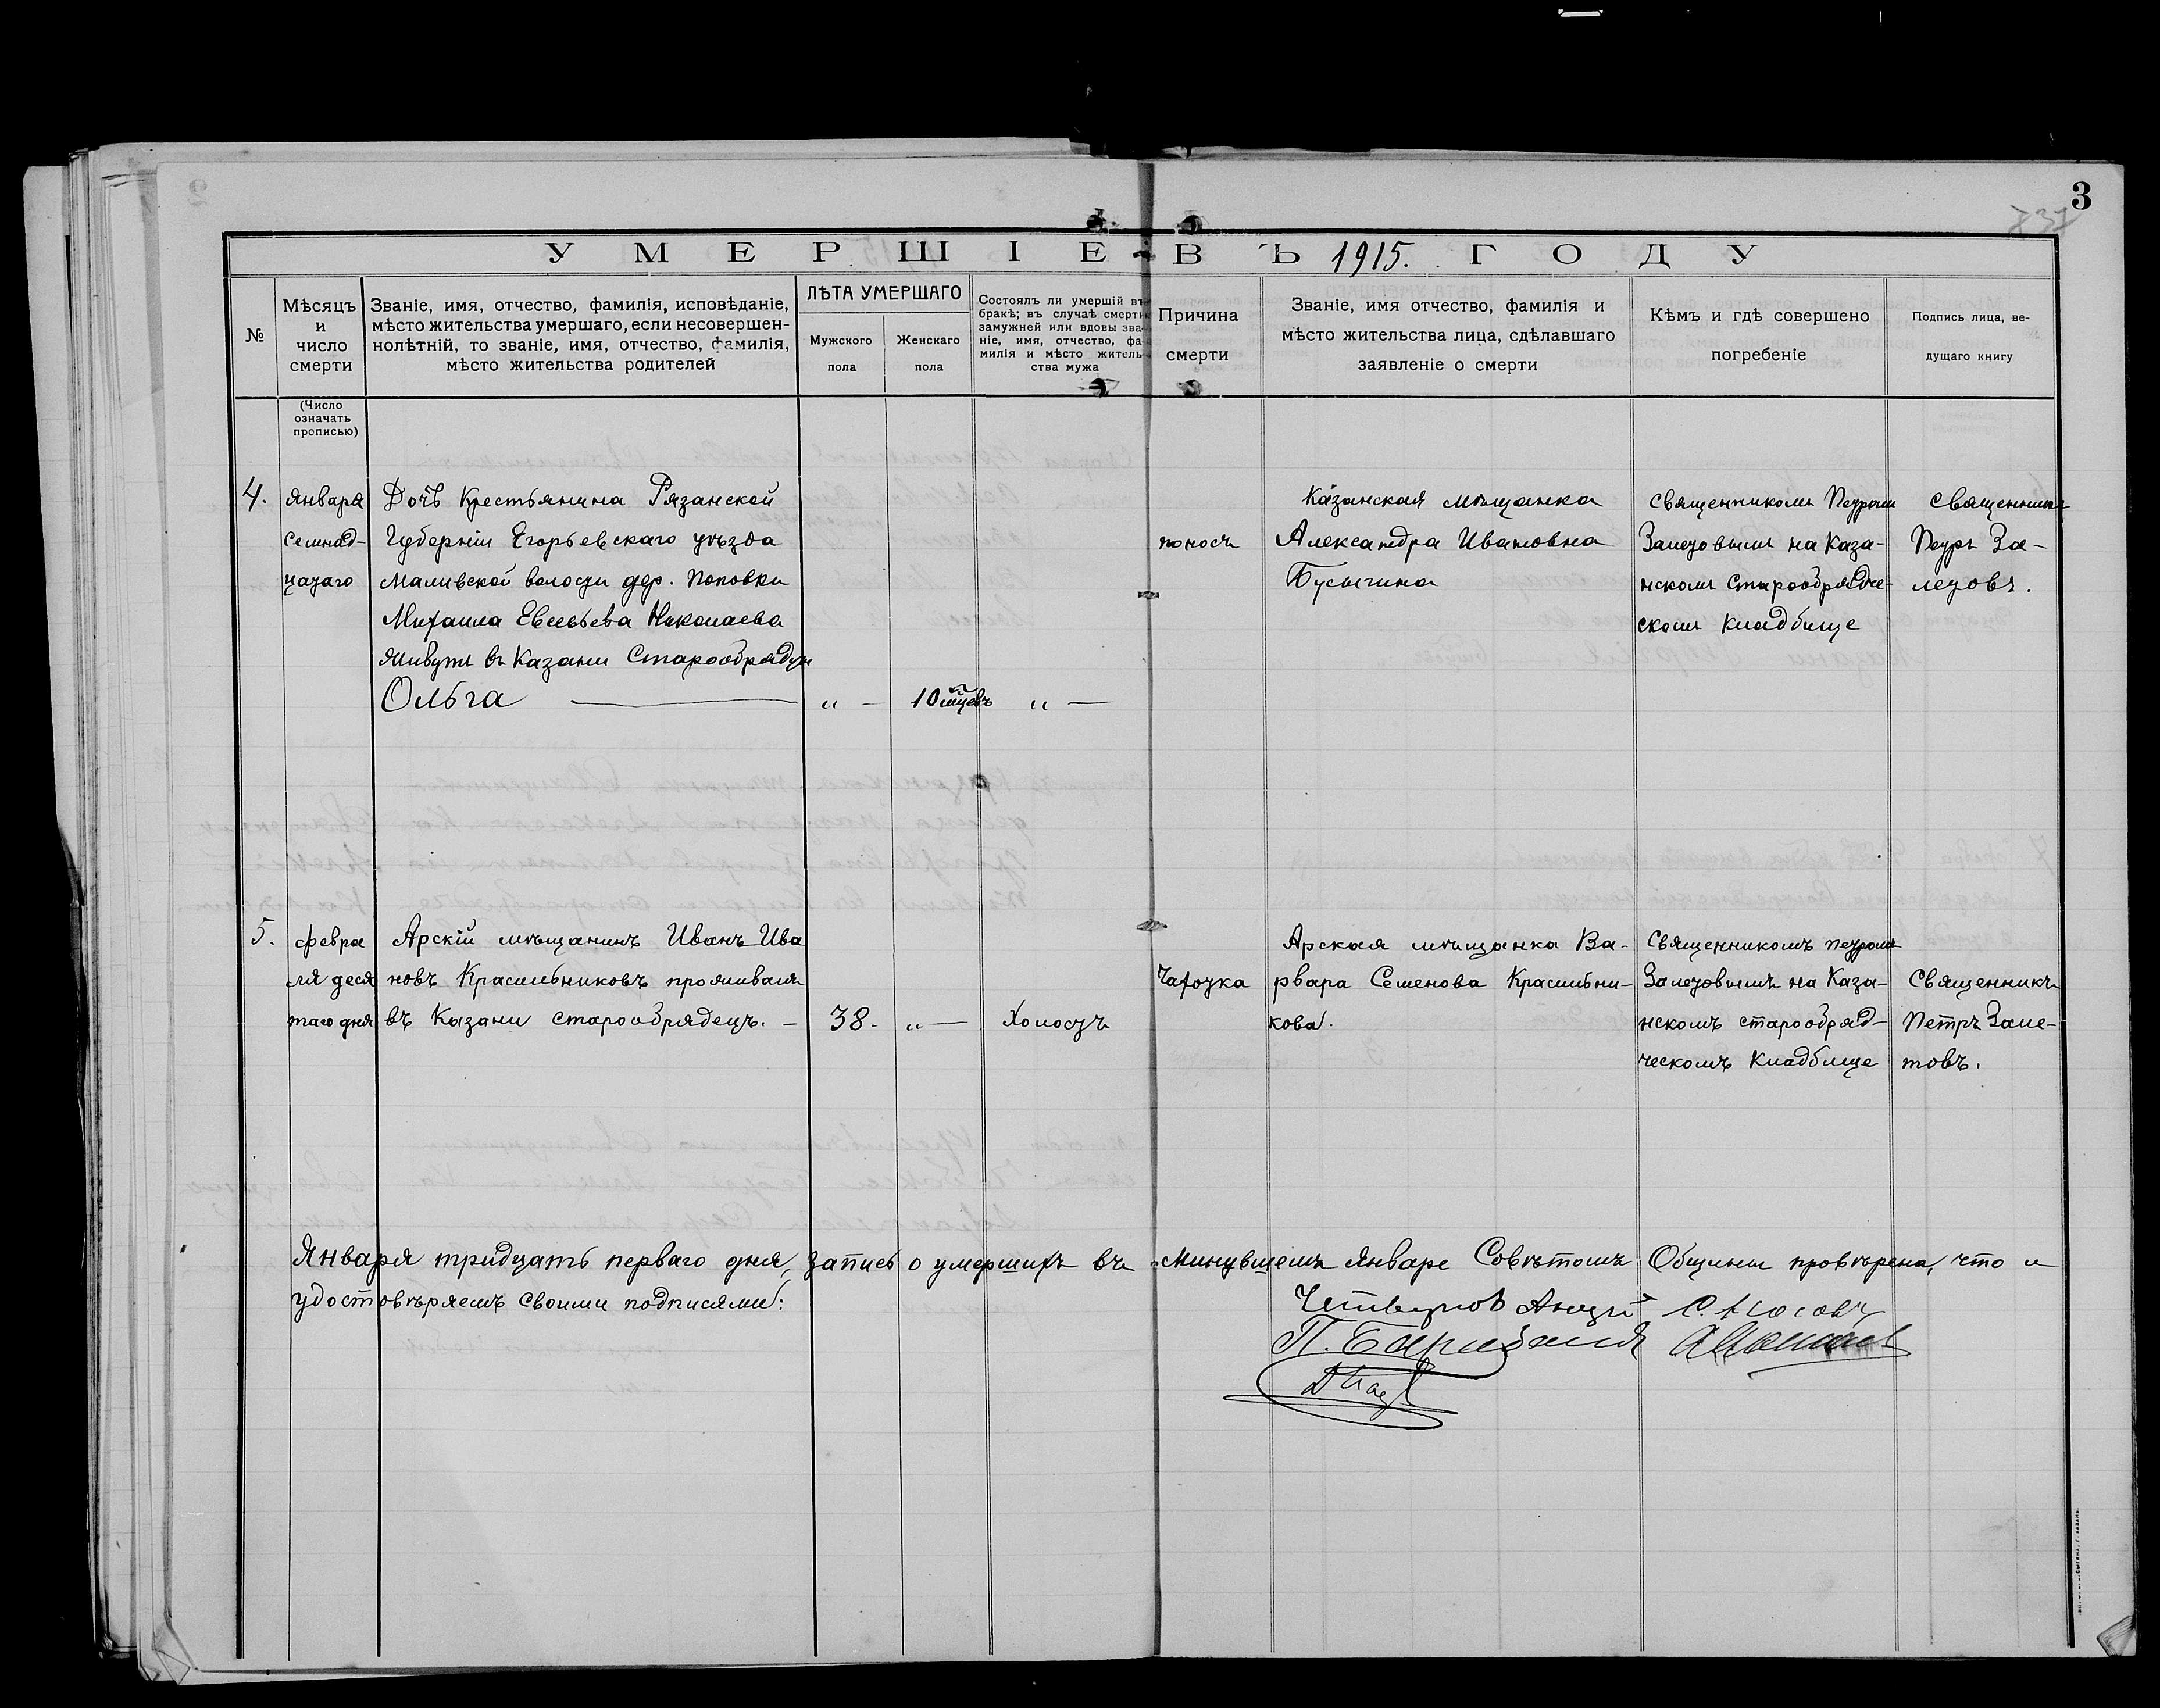 3
737
УМЕРШІЕ ВЪ 1915. ГОДУ
№
Мѣсяцъ
и
число
смерти
Званіе, имя, отчество, фамилія, исповѣданіе,
мѣсто жительства умершаго, если несовершен-
нолѣтній, то званіе, имя, отчество, фамилія,
мѣсто жительства родителей
ЛѢТА УМЕРШАГО
Мужского
пола
Женскаго
пола
Состоялъ ли умершій въ
бракѣ; въ случаѣ смерти
замужней или вдовы зва-
ніе, имя, отчество, фа-
милія и мѣсто житель-
ства мужа
Причина
смерти
Званіе, имя отчество, фамилія и
мѣсто жительства лица, сдѣлавшаго
заявленіе о смерти
Кѣмъ и гдѣ совершено
погребеніе
Подпись лица, ве-
дущаго книгу
(Число
означать
прописью)
4.
Января
семнад-
цатаго
Дочь Крестьянина Рязанской
Губерніи Егорьевскаго уѣзда
Маливской волости дер. Поповки
Михаила Евсевьева Николаева
живутъ въ Казани Старообрядцы
Ольга
" —
10 мцевъ
" —
поносъ
Казанская мѣщанка
Александра Ивановна
Бусыгина
Священникомъ Петромъ
Залетовымъ на Каза-
нскомъ Старообрядче-
скомъ Кладбище
Священникъ
Петръ За-
летовъ.
5.
Февра
ля деся
таго дня
Арскій мѣщанинъ Иванъ Ива
новъ Красильниковъ проживалъ
въ Казани старообрядецъ. —
38.
" —
Холостъ
Чахотка
Арская мѣщанка Ва-
рвара Семенова Красильни-
кова.
Священникомъ Петромъ
Залетовымъ на Каза-
нскомъ старообряд-
ческомъ Кладбище
Священникъ
Петръ Зале-
товъ.
Января тридцать перваго дня, запись о умершихъ въ минувшемъ Январе Совѣтомъ Общины провѣрена, что и
удостовѣряемъ своими подписями: